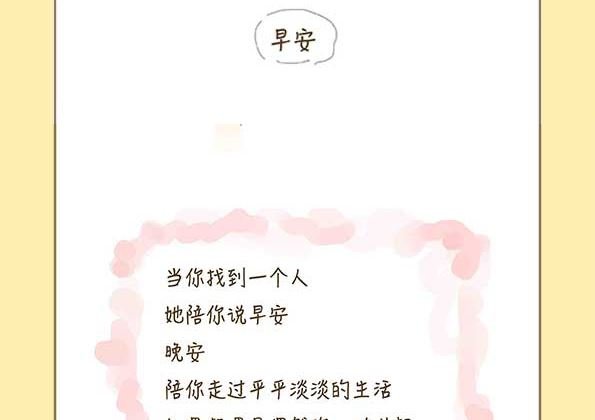 早安
当你找到一个人
她陪你说早安
晚安
陪你走过平平淡淡的生活